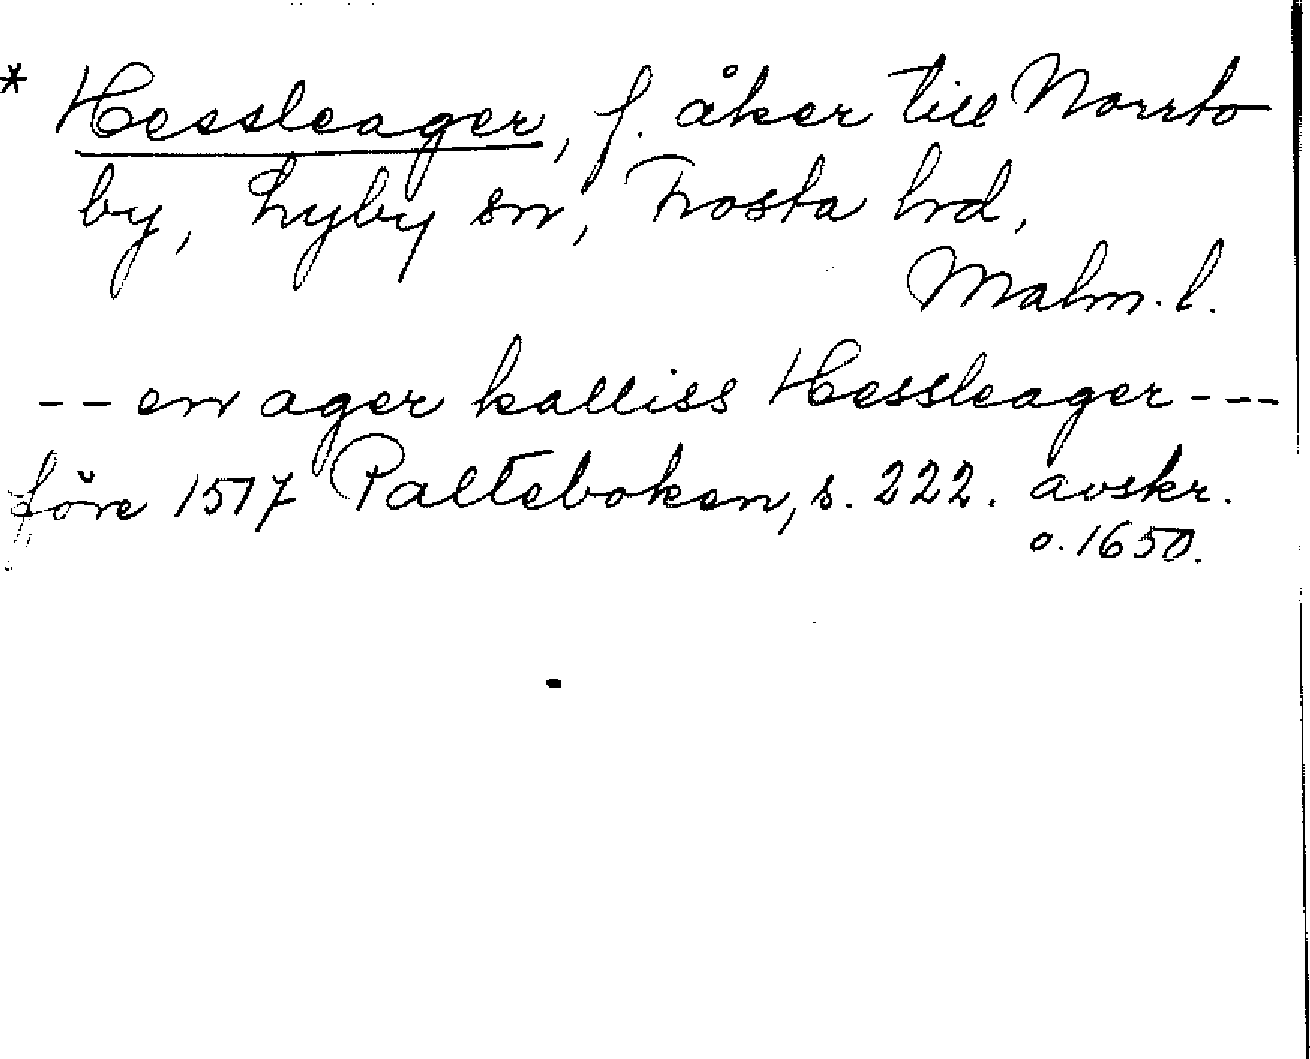 * Hessleager, f. åker till Norrto
by, Lyby sn, Frosta hrd,
Malm. l.
-- en ager kalliss Hessleager ---
före 1517 Palteboken, s. 222. avskr.
o. 1650.